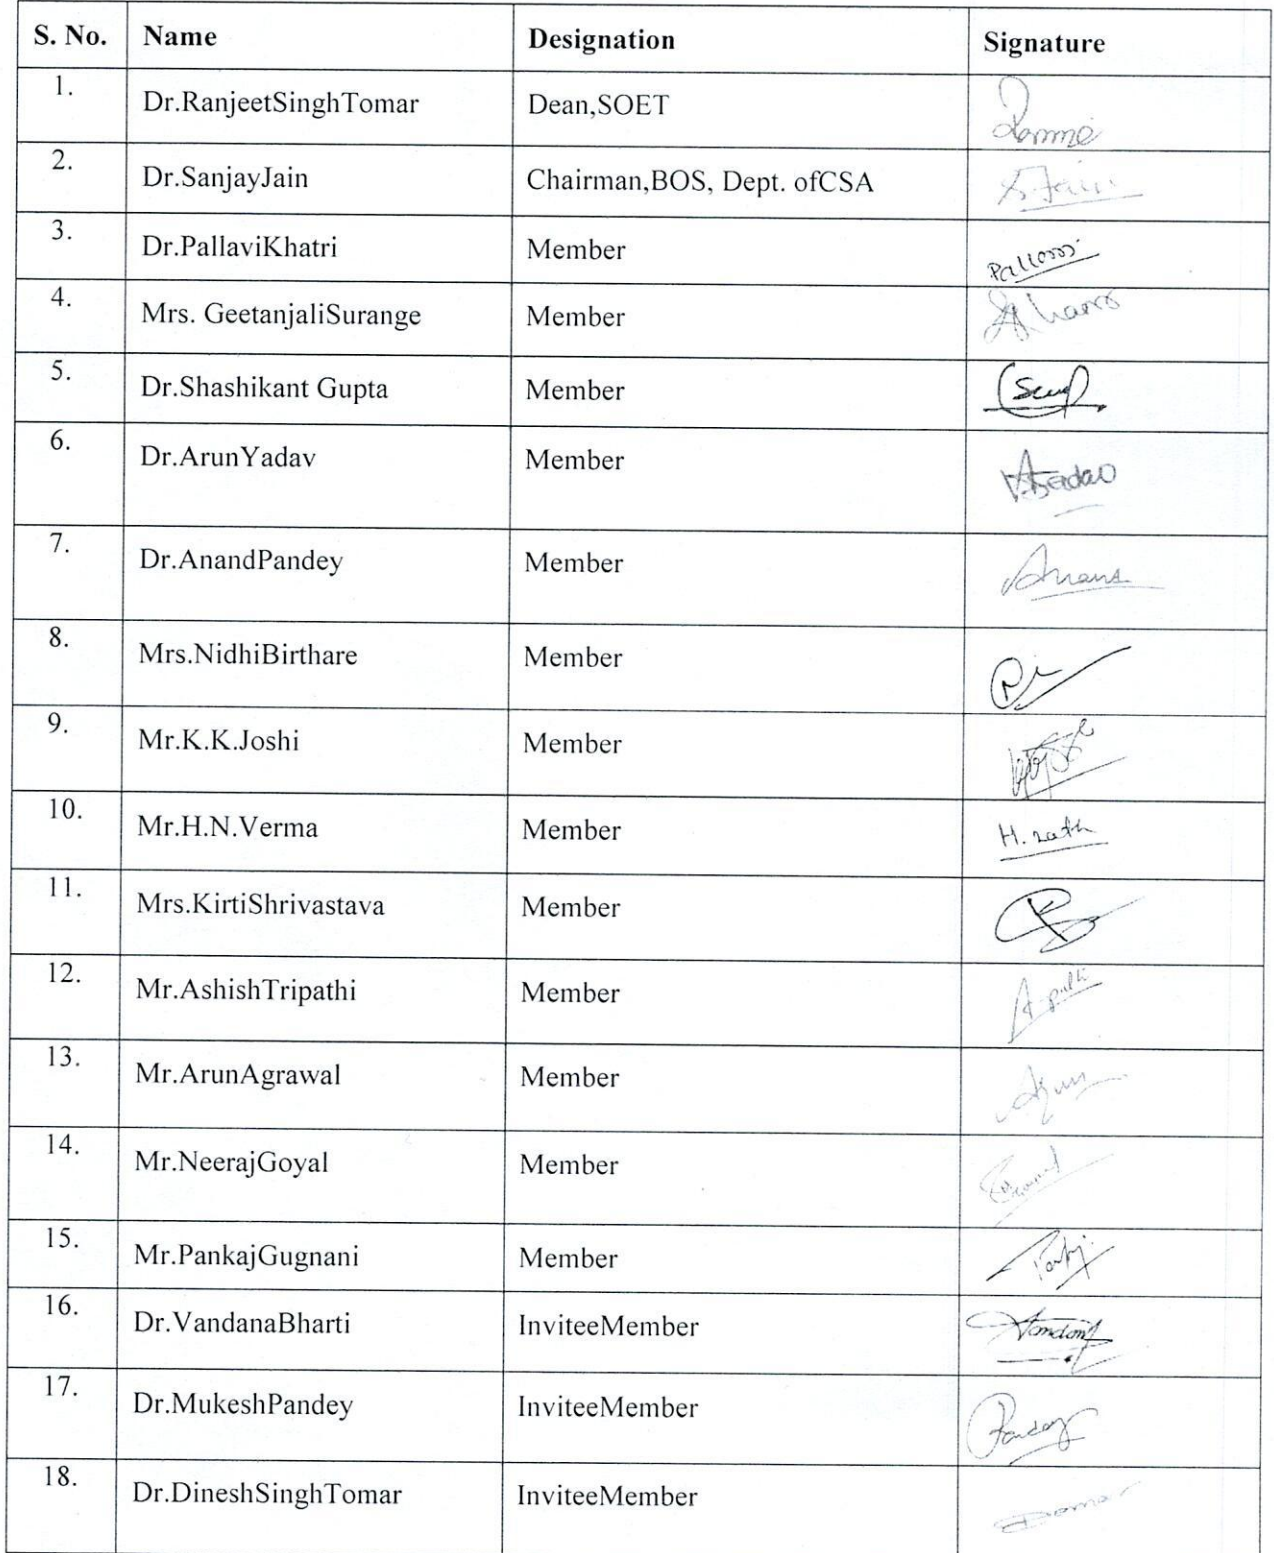 S. No. Name Designation Signature
1. Dr.RanjeetSinghTomar Dean,SOET
2. Dr.SanjayJain Chairman,BOS, Dept. ofCSA S.Jain
3. Dr.PallaviKhatri Member
4. Mrs. GeetanjaliSurange Member
5. Dr.Shashikant Gupta Member
6. Dr.ArunYadav Member
7. Dr.AnandPandey Member
8. Mrs.NidhiBirthare Member
9. Mr.K.K.Joshi Member
10. Mr.H.N.Verma Member H. nath
11. Mrs.KirtiShrivastava Member
12. Mr.AshishTripathi Member
13. Mr.ArunAgrawal Member
14. Mr.NeerajGoyal Member
15. Mr.PankajGugnani Member
16. Dr.VandanaBharti InviteeMember
17. Dr.MukeshPandey InviteeMember
18. Dr.DineshSinghTomar InviteeMember